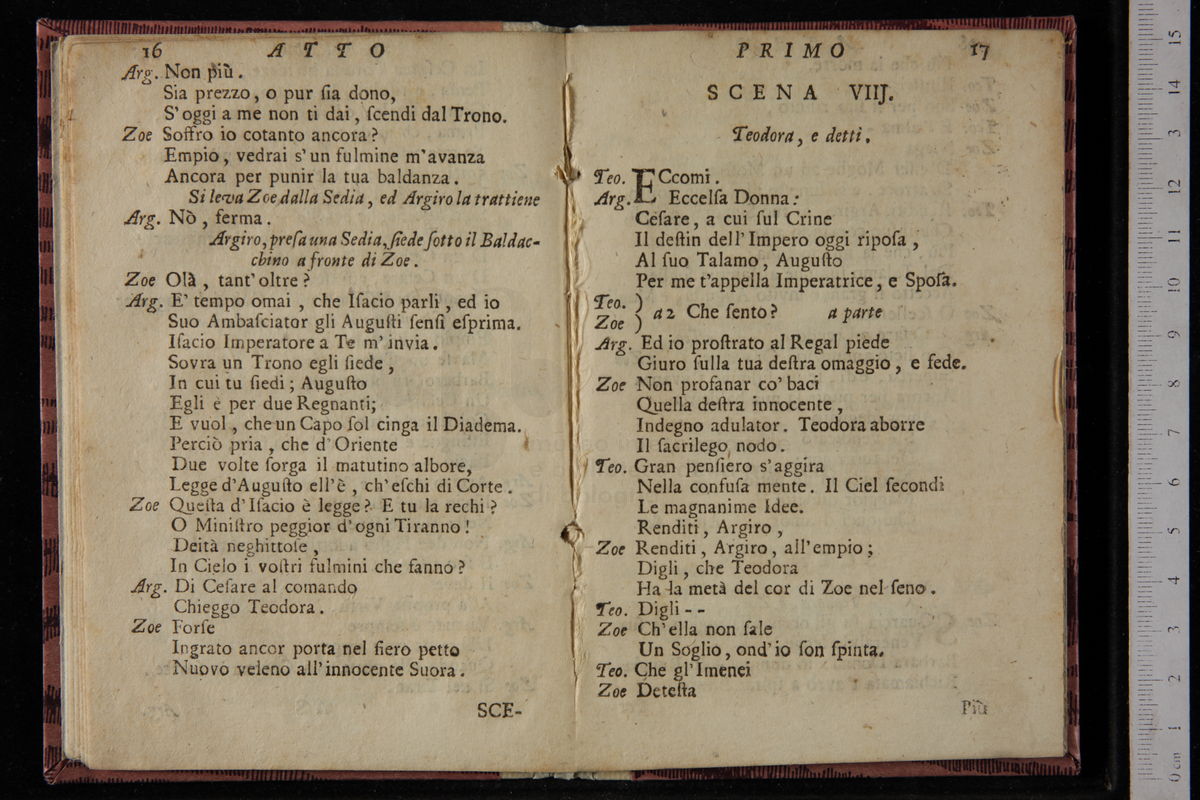 16 ATTO
Arg. Non più.
Sia prezzo, o pur ſia dono,
S'oggi a me non ti dai, ſcendi dal Trono.
Zoe Soffro io cotanto ancora?
Empio, vedrai s'un fulmine m'avanza
Ancora per punir la tua baldanza.
Si leva Zoe dalla Sedia, ed Argiro la trattiene
Arg. Nò, ferma.
Argiro, preſa una Sedia, ſiede ſotto il Baldac-
chino a fronte di Zoe.
Zoe Olà, tant'oltre?
Arg. E' tempo omai, che Iſacio parli, ed io
Suo Ambaſciator gli Auguſti ſenſi eſprima.
Iſacio Imperatore a Te m'invia.
Sovra un Trono egli ſiede,
In cui tu ſiedi; Auguſto
Egli è per due Regnanti;
E vuol, che un Capo ſol cinga il Diadema.
Perciò pria, che d'Oriente
Due volte ſorga il matutino albore,
Legge d'Auguſto ell'è, ch'eſchi di Corte.
Zoe Queſta d'Iſacio è legge? E tu la rechi?
O Miniſtro peggior d'ogni Tiranno!
Deità neghittoſe,
In Cielo i voſtri fulmini che fanno?
Arg. Di Ceſare al comando
Chieggo Teodora.
Zoe Forſe
Ingrato ancor porta nel fiero petto
Nuovo veleno all'innocente Suora.
SCE-
PRIMO 17
SCENA VIIJ.
Teodora, e detti.
Teo. ECcomi.
Arg. Eccelſa Donna:
Ceſare, a cui ſul Crine
Il deſtin dell'Impero oggi ripoſa,
Al ſuo Talamo, Auguſto
Per me t'appella Imperatrice, e Spoſa.
Teo. )
Zoe ) a 2 Che ſento? a parte
Arg. Ed io proſtrato al Regal piede
Giuro ſulla tua deſtra omaggio, e fede.
Zoe Non profanar co'baci
Quella deſtra innocente,
Indegno adulator. Teodora aborre
Il ſacrilego nodo.
Teo. Gran penſiero s'aggira
Nella confuſa mente. Il Ciel ſecondi
Le magnanime Idee.
Renditi, Argiro,
Zoe Renditi, Argiro, all'empio;
Digli, che Teodora
Ha la metà del cor di Zoe nel ſeno.
Teo. Digli - -
Zoe Ch'ella non ſale
Un Soglio, ond'io ſon ſpinta.
Teo. Che gl'Imenei
Zoe Deteſta
Più